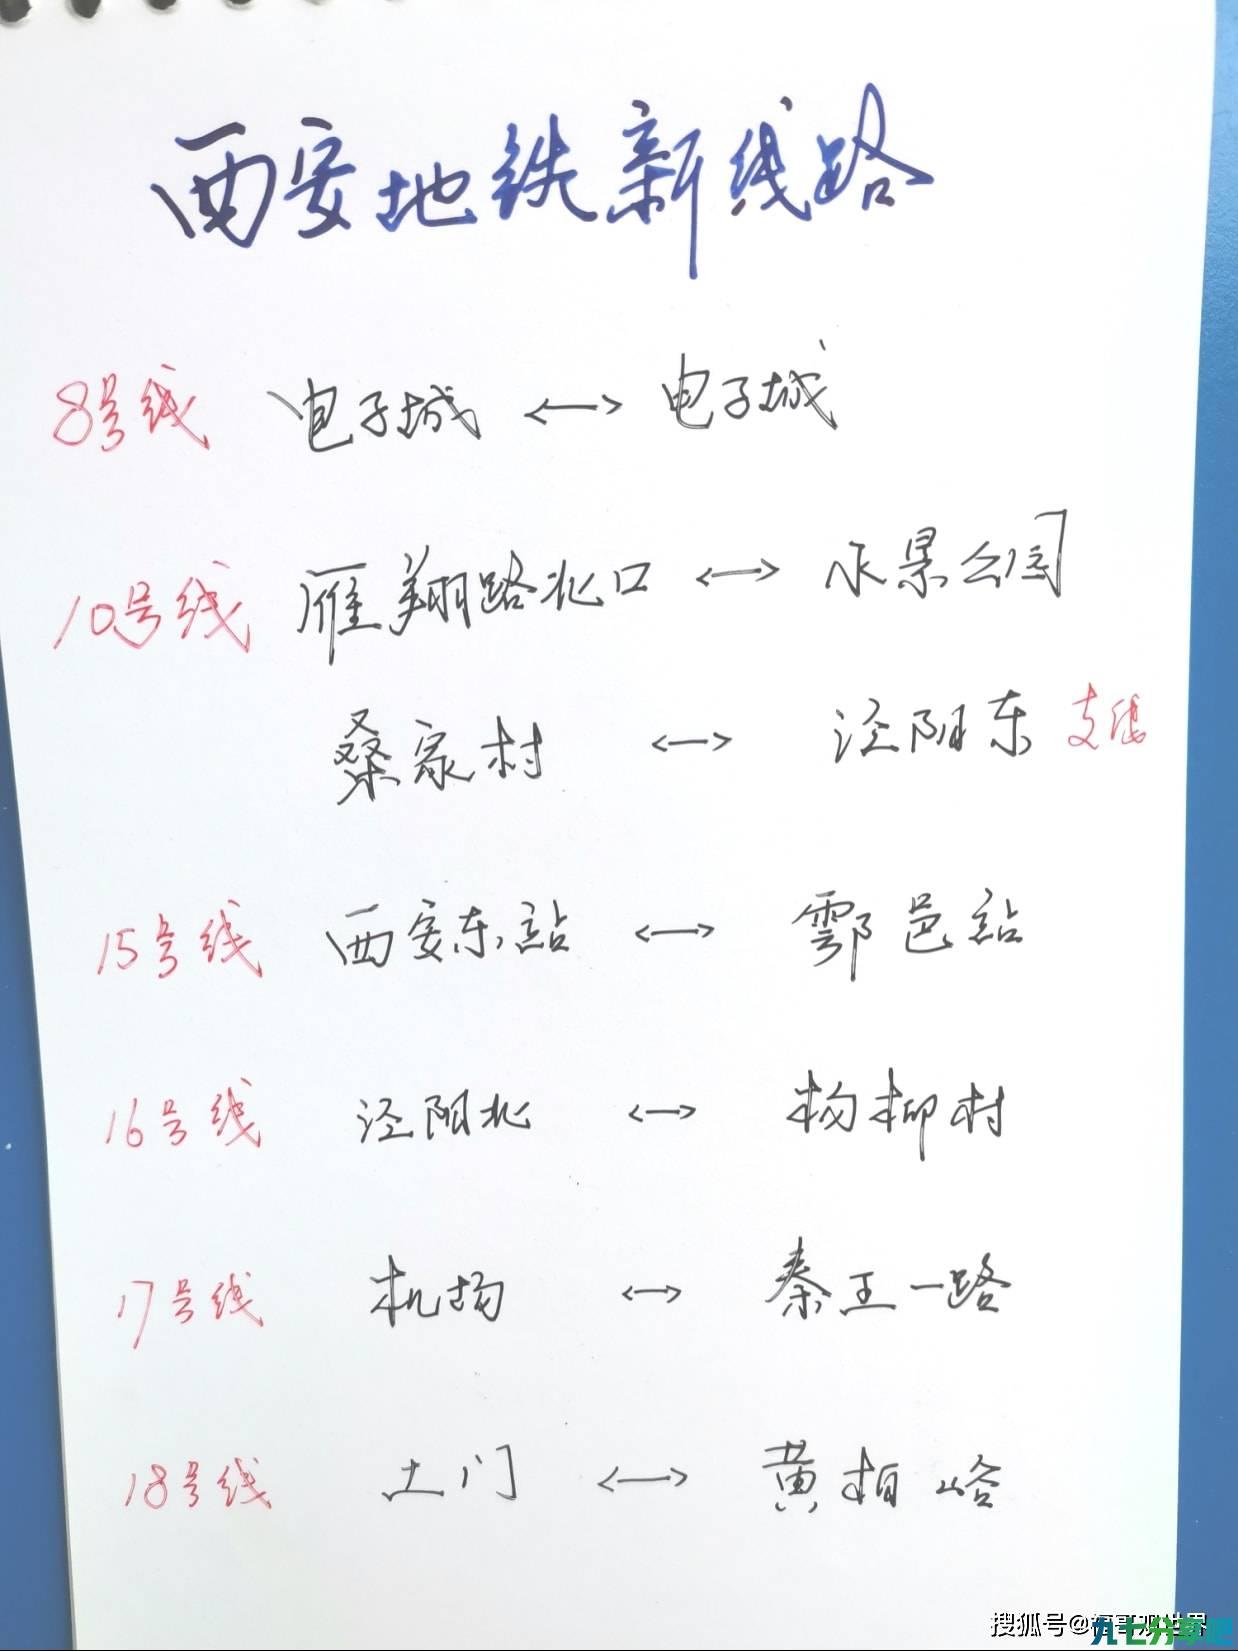 西安地铁新线路
8号线 电子城 <—> 电子城
10号线 雁翔路北口 <—> 水景公园
桑家村 <—> 泾阳东 支线
15号线 西安东站 <—> 鄠邑站
16号线 泾阳北 <—> 杨柳村
17号线 机场 <—> 秦王一路
18号线 土门 <—> 黄柏峪
搜狐号@福哥观世界
九七分享吧